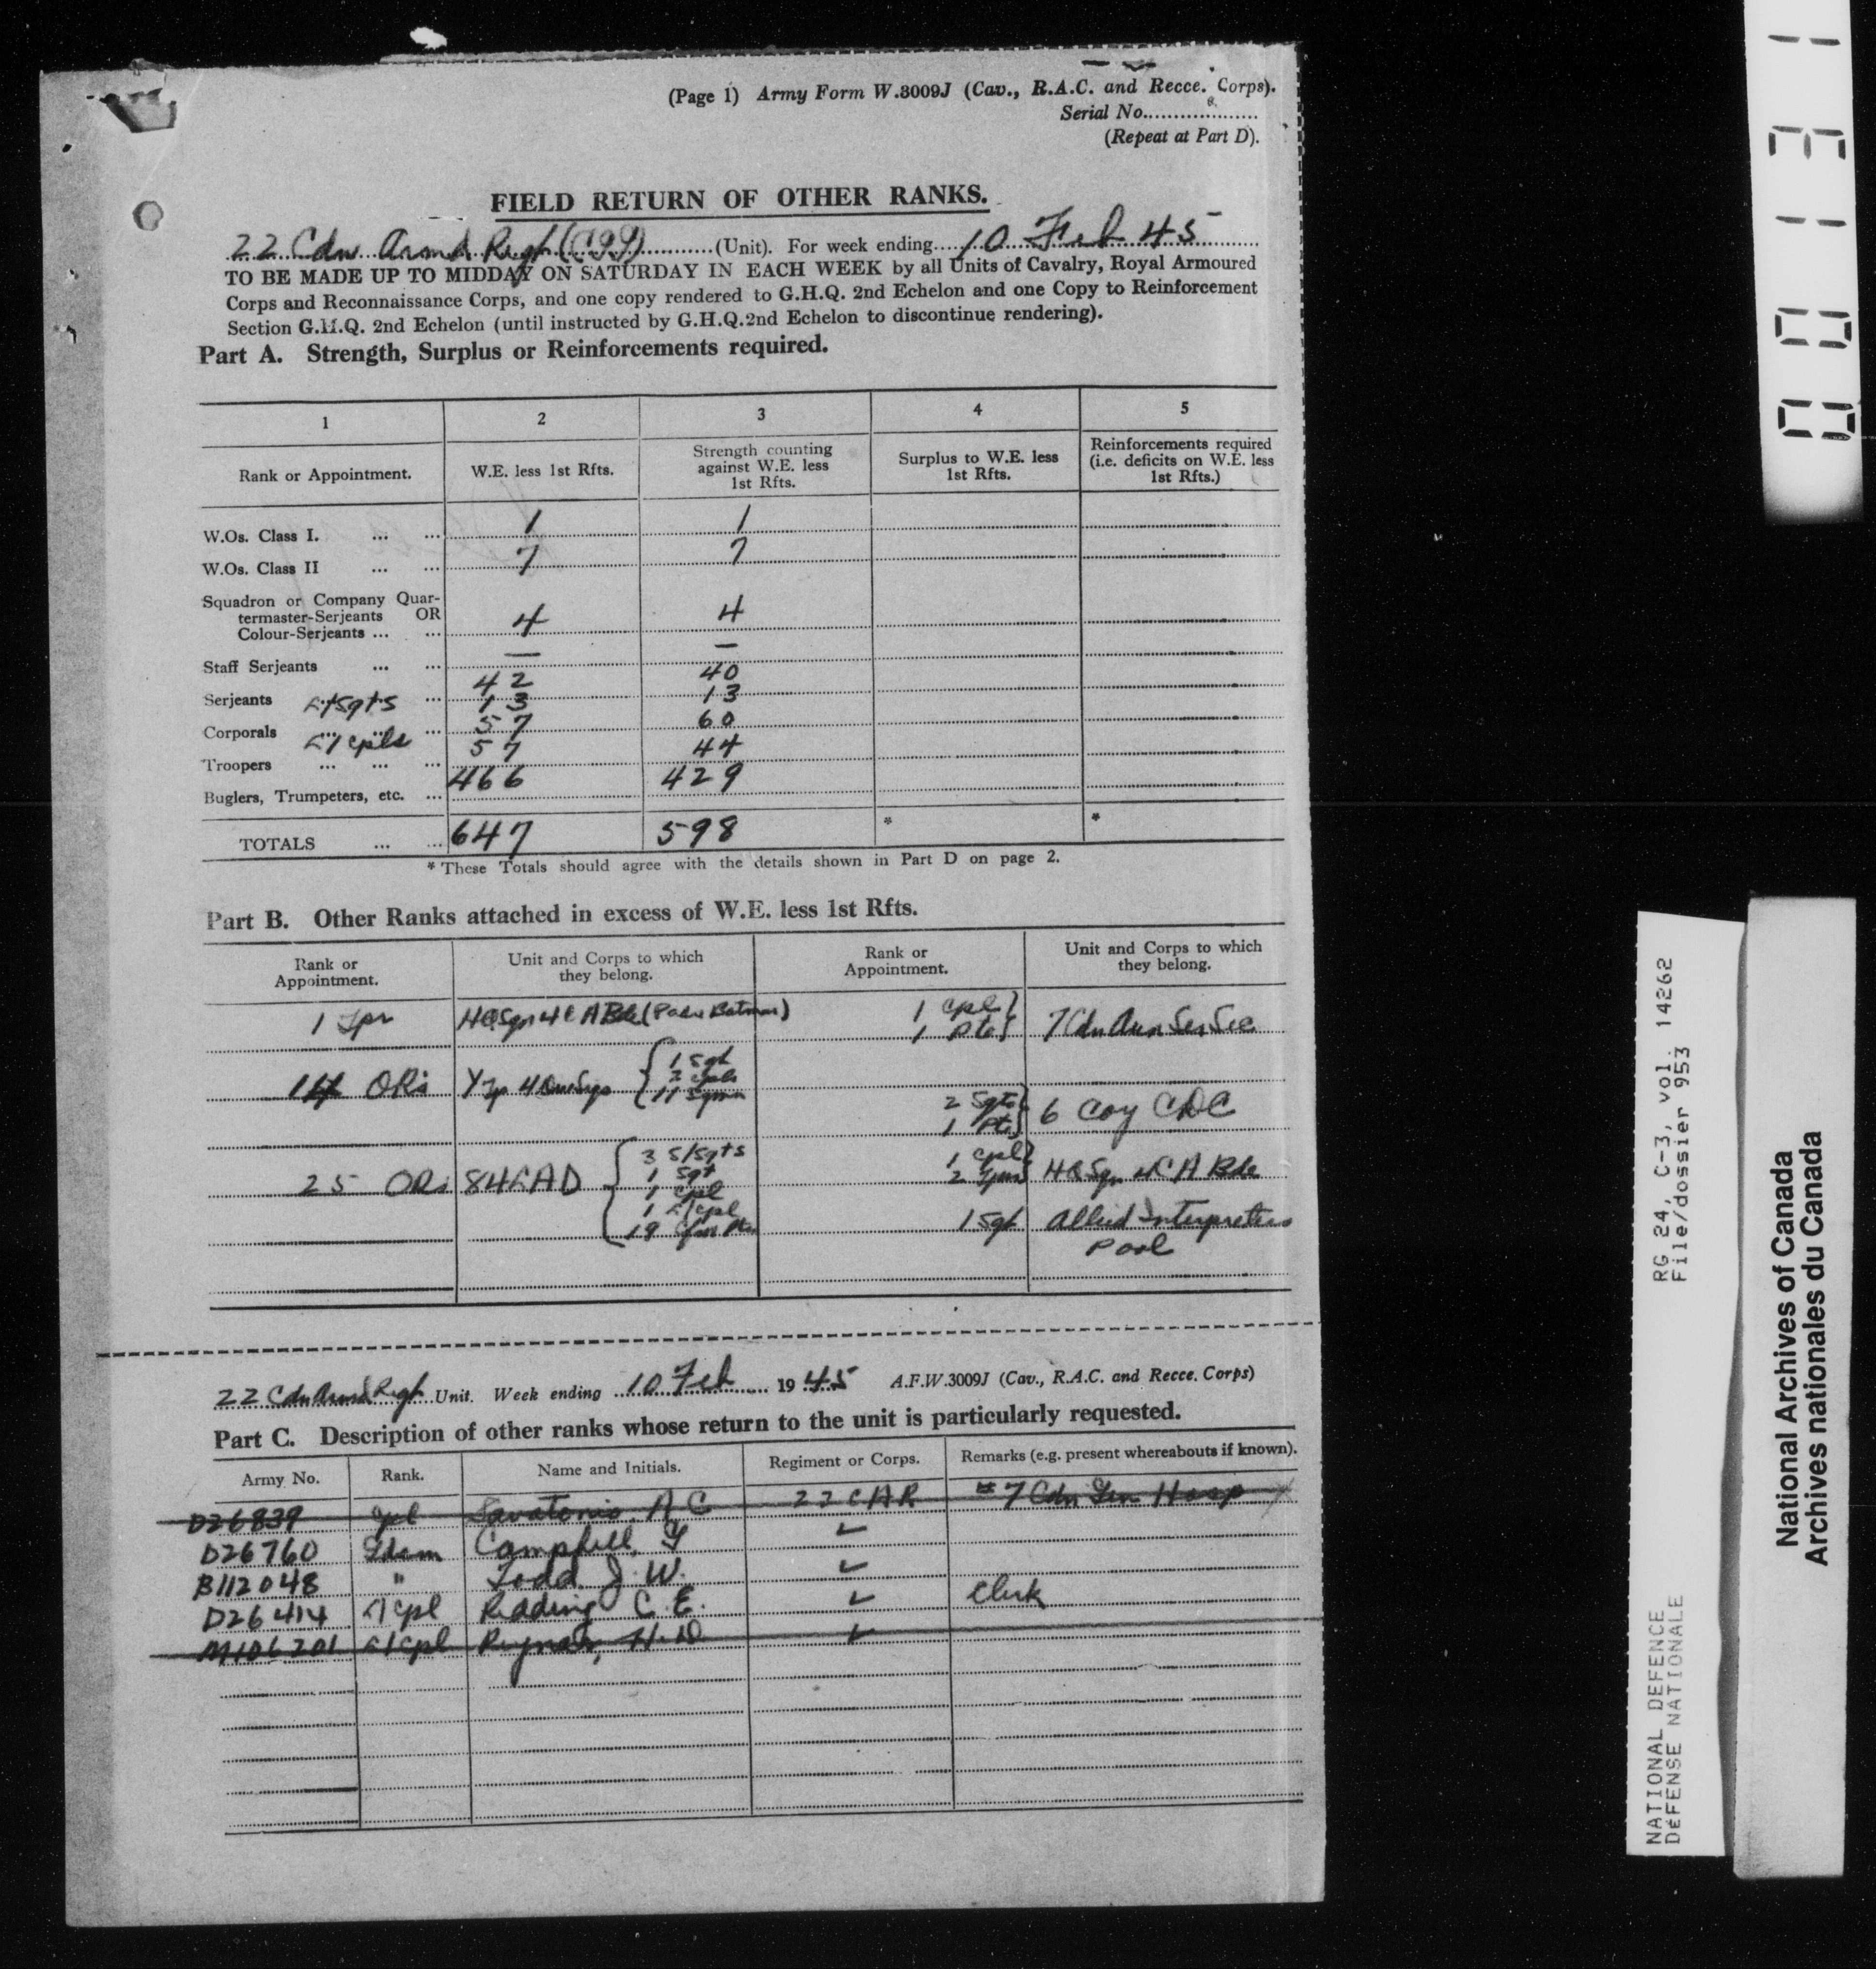 (Page 1) Army Form W.3009J (Cav., R.A.C. and Recce. Corps).
Serial No.
(Repeat at Part D).
FIELD RETURN OF OTHER RANKS.
22 Cdn Armd Regt (CGG) (Unit). For week ending 10 Feb 45
TO BE MADE UP TO MIDDAY ON SATURDAY IN EACH WEEK by all Units of Cavalry, Royal Armoured
Corps and Reconnaissance Corps, and one copy rendered to G.H.Q. 2nd Echelon and one Copy to Reinforcement
Section G.H.Q. 2nd Echelon (until instructed by G.H.Q.2nd Echelon to discontinue rendering).
Part A. Strength, Surplus or Reinforcements required.
1 2 3 4 5
Rank or Appointment. W.E. less 1st Rfts. Strength counting against W.E. less 1st Rfts. Surplus to W.E. less 1st Rfts. Reinforcements required (i.e. deficits on W.E. less 1st Rfts.)
W.Os. Class I. ... ... 1 1
W.Os. Class II ... ... 7 7
Squadron or Company Quar-
termaster-Serjeants OR
Colour-Serjeants ... ... 4 4
Staff Serjeants ... ... — —
42 40
Serjeants L/Sgts ... 13 13
Corporals ... 57 60
L/Cpls 57 44
Troopers ... ... ...
466 429
Buglers, Trumpeters, etc. ...
TOTALS ... ... 647 598 * *
* These Totals should agree with the details shown in Part D on page 2.
Part B. Other Ranks attached in excess of W.E. less 1st Rfts.
Rank or Appointment. Unit and Corps to which they belong. Rank or Appointment. Unit and Corps to which they belong.
1 Tpr HQ Sqn 4 C A Bde (Padre Batman) 1 Cpl 1 Pte 7 Cdn Aux Ser Sec
14 ORs Y Tp 4 1 Sgt 2 Cpls 11 Sgmn
2 Sgts 1 Pte 6 Coy CDC
25 ORs 84 LAD 3 S/Sgts 1 Sgt 1 Cpl 1 L/Cpl 19 1 Cpl 2 HQ Sqn 4 C A Bde
1 Sgt Allied Interpreters Pool
22 Cdn Armd Regt Unit. Week ending 10 Feb 1945 A.F.W.3009J (Cav., R.A.C. and Recce. Corps)
Part C. Description of other ranks whose return to the unit is particularly requested.
Army No. Rank. Name and Initials. Regiment or Corps. Remarks (e.g. present whereabouts if known).
D26839 Cpl A C 22 C A R #7 Cdn Gen Hosp
D26760 Gdsm Campbell, ✓
B112048 " Todd J. W. ✓
D26414 L/Cpl Redding C. E. ✓ Clerk
M106201 L/Cpl H. D. ✓
00131
RG 24, C-3, vol. 14262
File/dossier 953
NATIONAL DEFENCE
DÉFENSE NATIONALE
National Archives of Canada
Archives nationales du Canada